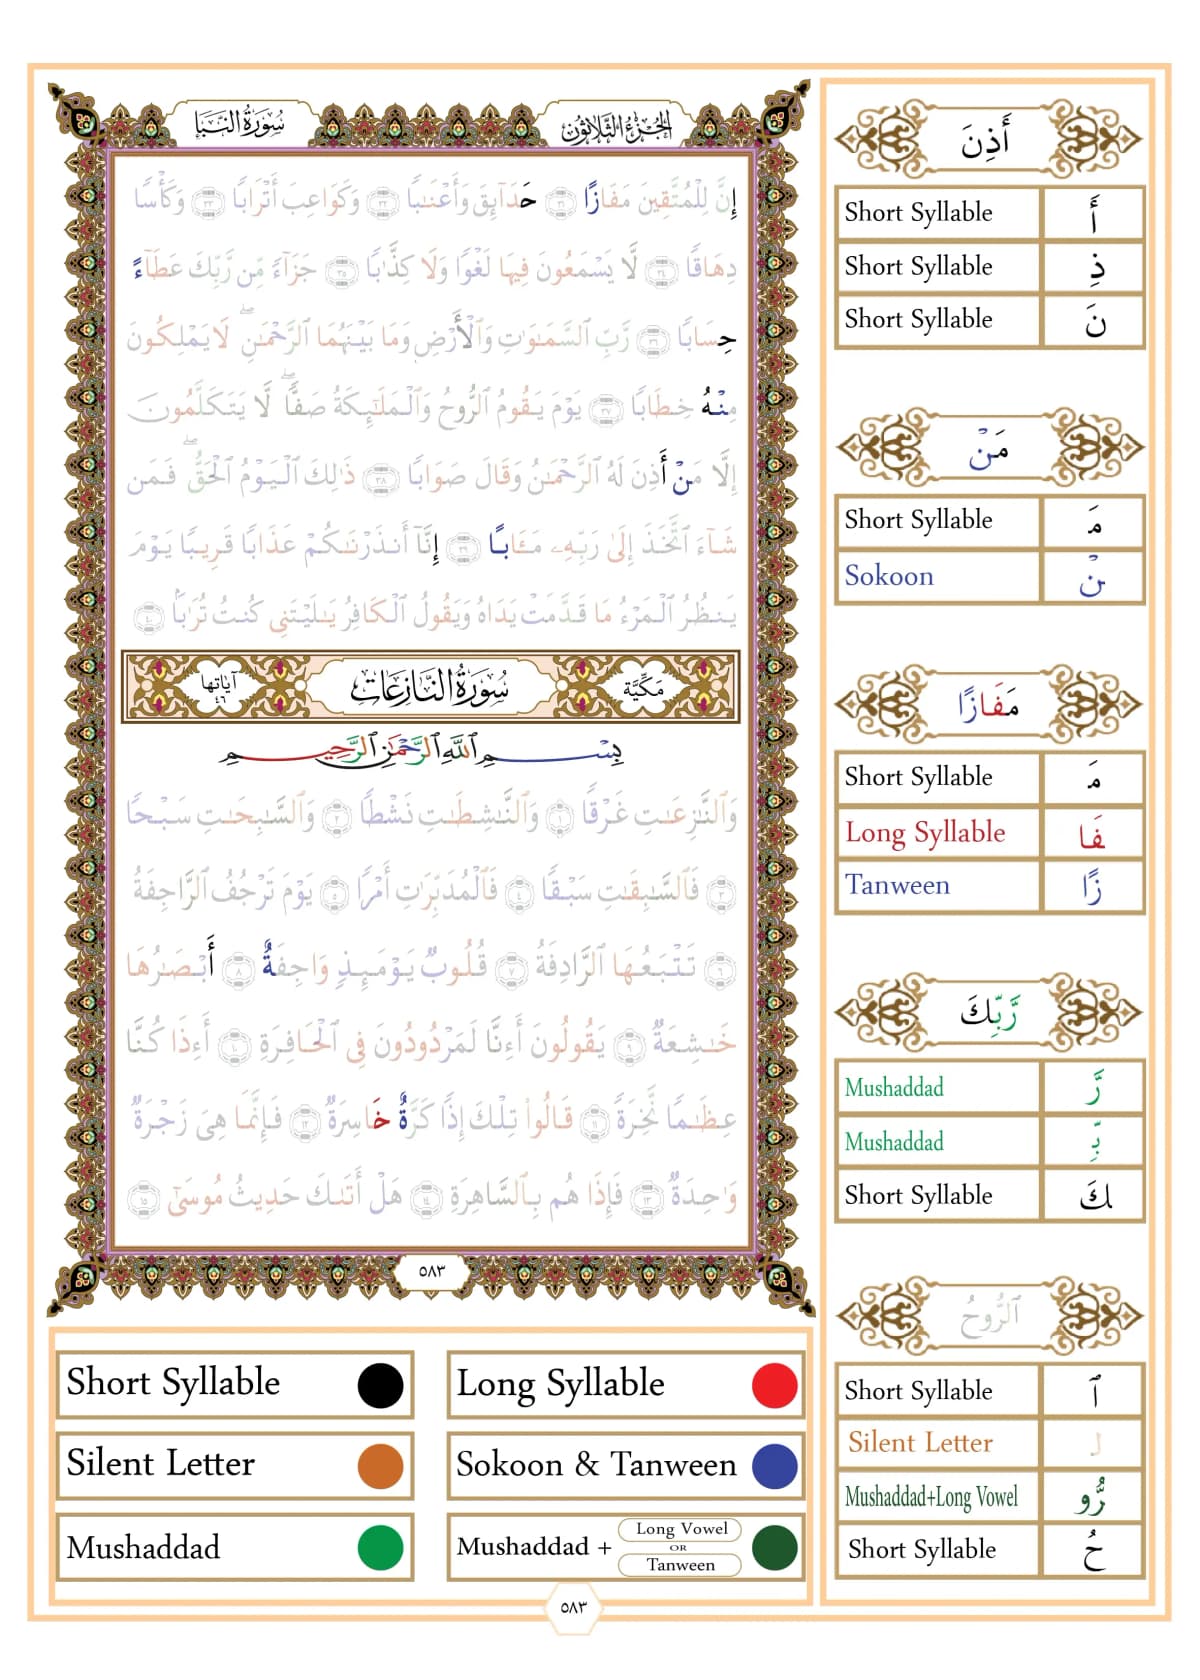 سُورَةُ النَّبَإِ
الجُزْءُ الثَّلَاثُونَ
إِنَّ لِلْمُتَّقِينَ مَفَازًا ٣١ حَدَآئِقَ وَأَعْنَٰبًا ٣٢ وَكَوَاعِبَ أَتْرَابًا ٣٣ وَكَأْسًا
دِهَاقًا ٣٤ لَّا يَسْمَعُونَ فِيهَا لَغْوًا وَلَا كِذَّٰبًا ٣٥ جَزَآءً مِّن رَّبِّكَ عَطَآءً
حِسَابًا ٣٦ رَّبِّ ٱلسَّمَٰوَٰتِ وَٱلْأَرْضِ وَمَا بَيْنَهُمَا ٱلرَّحْمَٰنِۖ لَا يَمْلِكُونَ
مِنْهُ خِطَابًا ٣٧ يَوْمَ يَقُومُ ٱلرُّوحُ وَٱلْمَلَٰٓئِكَةُ صَفًّاۖ لَّا يَتَكَلَّمُونَ
إِلَّا مَنْ أَذِنَ لَهُ ٱلرَّحْمَٰنُ وَقَالَ صَوَابًا ٣٨ ذَٰلِكَ ٱلْيَوْمُ ٱلْحَقُّۖ فَمَن
شَآءَ ٱتَّخَذَ إِلَىٰ رَبِّهِۦ مَـَٔابًا ٣٩ إِنَّآ أَنذَرْنَٰكُمْ عَذَابًا قَرِيبًا يَوْمَ
يَنظُرُ ٱلْمَرْءُ مَا قَدَّمَتْ يَدَاهُ وَيَقُولُ ٱلْكَافِرُ يَٰلَيْتَنِى كُنتُ تُرَٰبًۢا ٤٠
مَكِّيَّة
سُورَةُ النَّازِعَاتِ
آيَاتُهَا ٤٦
بِسْمِ ٱللَّهِ ٱلرَّحْمَٰنِ ٱلرَّحِيمِ
وَٱلنَّٰزِعَٰتِ غَرْقًا ١ وَٱلنَّٰشِطَٰتِ نَشْطًا ٢ وَٱلسَّٰبِحَٰتِ سَبْحًا
٣ فَٱلسَّٰبِقَٰتِ سَبْقًا ٤ فَٱلْمُدَبِّرَٰتِ أَمْرًا ٥ يَوْمَ تَرْجُفُ ٱلرَّاجِفَةُ
٦ تَتْبَعُهَا ٱلرَّادِفَةُ ٧ قُلُوبٌ يَوْمَئِذٍ وَاجِفَةٌ ٨ أَبْصَٰرُهَا
خَٰشِعَةٌ ٩ يَقُولُونَ أَءِنَّا لَمَرْدُودُونَ فِى ٱلْحَافِرَةِ ١٠ أَءِذَا كُنَّا
عِظَٰمًا نَّخِرَةً ١١ قَالُوا۟ تِلْكَ إِذًا كَرَّةٌ خَاسِرَةٌ ١٢ فَإِنَّمَا هِىَ زَجْرَةٌ
وَٰحِدَةٌ ١٣ فَإِذَا هُم بِٱلسَّاهِرَةِ ١٤ هَلْ أَتَىٰكَ حَدِيثُ مُوسَىٰٓ ١٥
٥٨٣
أَذِنَ
Short Syllable أَ
Short Syllable ذِ
Short Syllable نَ
مَنْ
Short Syllable مَـ
Sokoon ـنْ
مَفَازًا
Short Syllable مَـ
Long Syllable فَا
Tanween زًا
رَّبِّكَ
Mushaddad رَّ
Mushaddad بِّـ
Short Syllable ـكَ
ٱلرُّوحُ
Short Syllable ٱ
Silent Letter لـ
Mushaddad+Long Vowel رُّو
Short Syllable حُ
Short Syllable
Long Syllable
Silent Letter
Sokoon & Tanween
Mushaddad
Mushaddad + Long Vowel OR Tanween
٥٨٣